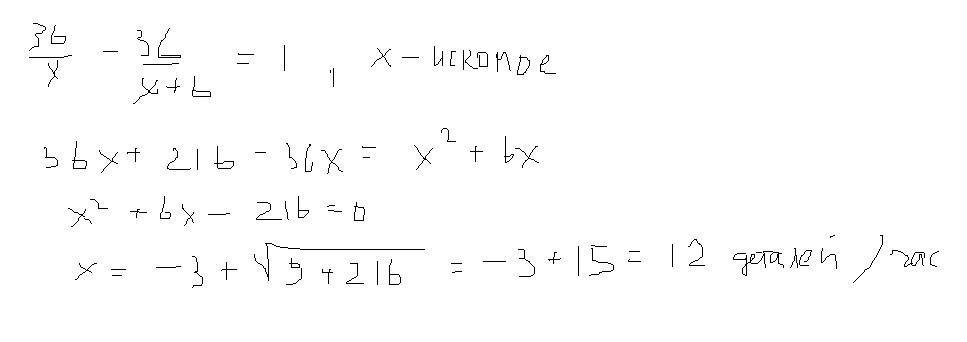 36/x - 36/(x+6) = 1 , x - искомое
36x + 216 - 36x = x² + 6x
x² + 6x - 216 = 0
x = -3 + √(9+216) = -3 + 15 = 12 деталей/час